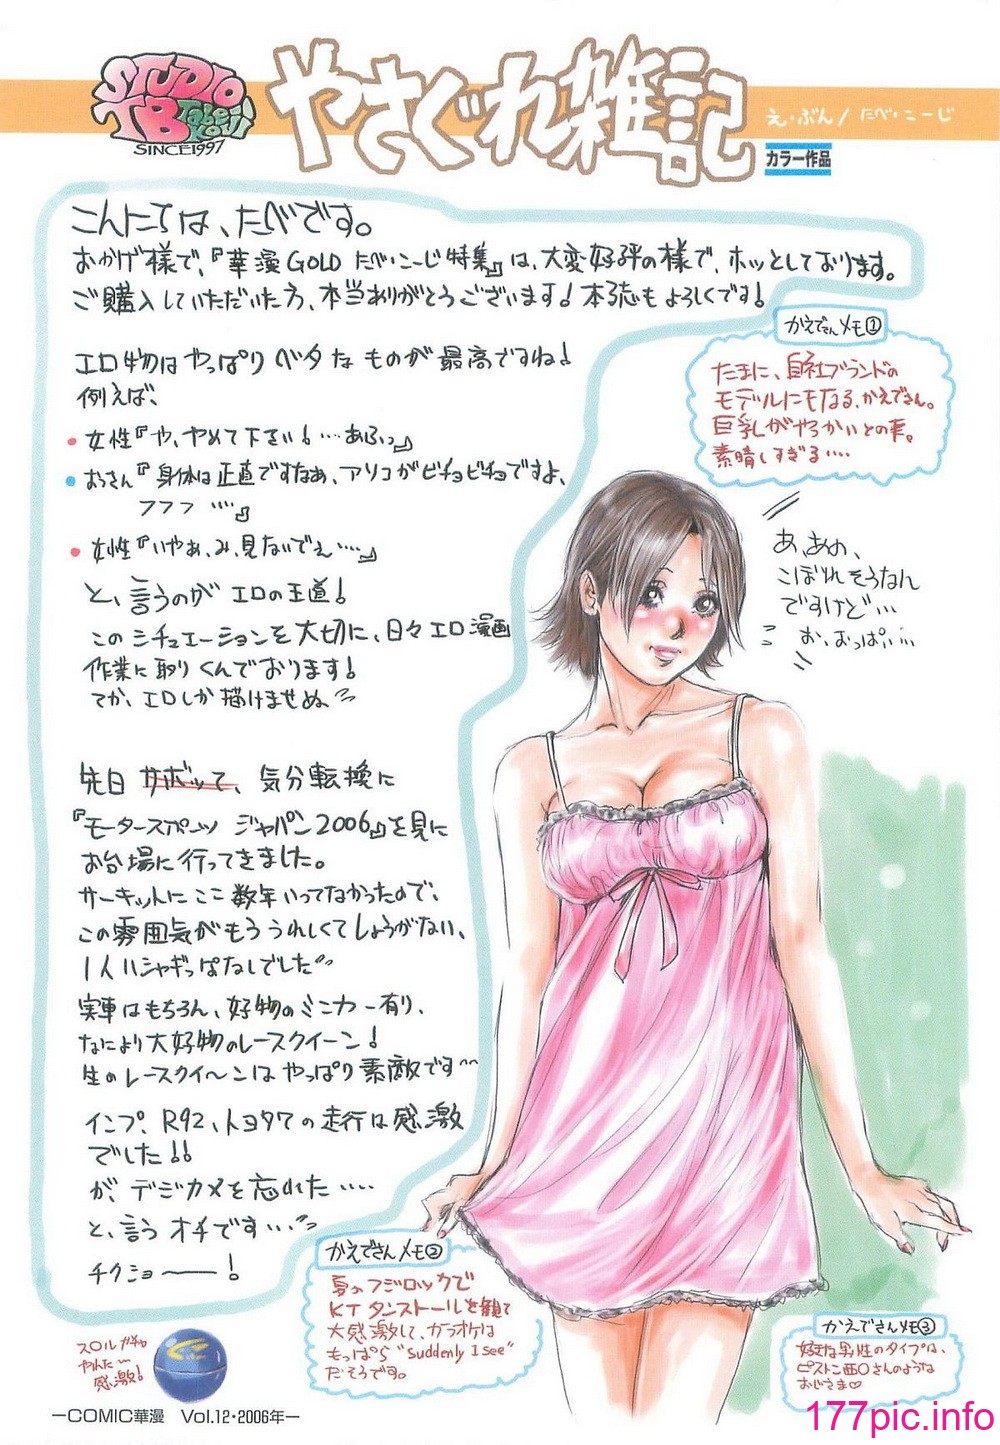 STUDIO
TB Tabe Koji
SINCE1997
やさぐれ雑記
え・ぶん/たべ・こーじ
カラー作品
こんにちは、たべです。
おかげ様で、『華漫GOLD たべ・こーじ特集』は、大変好評の様で、ホッとしております。
ご購入していただいた方、本当ありがとうございます!本誌もよろしくです!
エロ物はやっぱりベタなものが最高ですね!
例えば、
・女性『や、やめて下さい!…あふっ』
・おっさん『身体は正直ですなぁ、アソコがビチョビチョですよ、
フフフ…』
・女性『いやぁ、み、見ないでぇ……』
と、言うのがエロの王道!
このシチュエーションを大切に、日々エロ漫画
作業に取りくんでおります!
てか、エロしか描けませぬ。
先日サボッて、気分転換に
『モータースポーツ ジャパン2006』を見に
お台場に行ってきました。
サーキットにここ数年いってなかったので、
この雰囲気がもううれしくてしょうがない、
1人ハシャギっぱなしでした。
実車はもちろん、好物のミニカー有り、
なにより大好物のレースクイーン!
生のレースクイ〜ンはやっぱり素敵です〜
インプ、R92、トヨタ7の走行は感激
でした!!
が、デジカメを忘れた……
と、言うオチです…
チクショーー!
かえでさんメモ①
たまに、自社ブランドの
モデルにもなる、かえでさん。
巨乳がやっかいとの事。
素晴しすぎる……
あ、あの、
こぼれそうなん
ですけど…
お、おっぱい…
かえでさんメモ②
夏のフジロックで
KTタンストールを観て
大感激して、カラオケは
もっぱら"Suddenly I see"
だそうです。
かえでさんメモ③
好きな男性のタイプは、
ピストン西〇さんのような
おじさま♡
スバルガチャ
やんた〜
感激!
ーCOMIC華漫 Vol.12・2006年ー
177pic.info